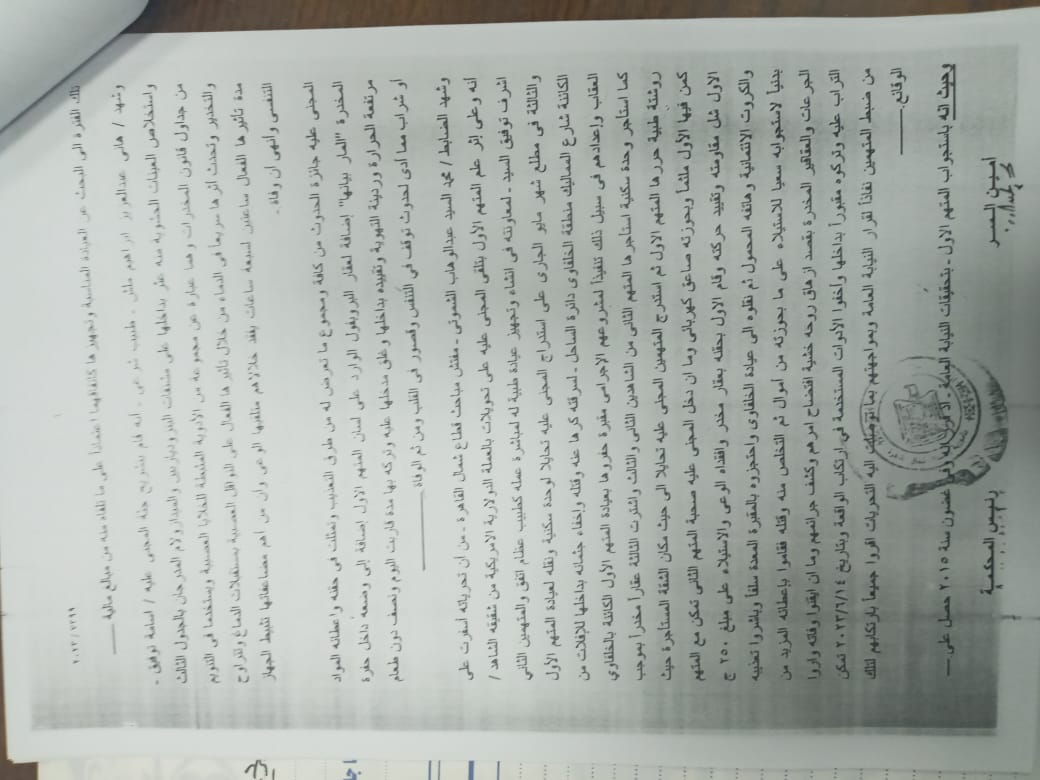 ٢٠٢٣/٧٢٩٩
تلك الفترة الى البحث عن العيادة المناسبة وتجهيزها كاتفاقهما اعتماداً على ما تلقاه منه من مبالغ مالية
وشهد / هانى عبدالعزيز ابراهيم - طبيب شرعى - انه قام بتشريح جثة المجنى عليه / اسامة توفيق -
واستخلاص العينات الحشوية منه عثر بداخلها على مشتقات البنزوديازبين والميدازولام المدرجان بالجدول الثالث
من جداول قانون المخدرات وهما عبارة عن مجموعة من الأدوية المثبطة للخلايا العصبية ويستخدما فى التنويم
والتخدير وتحدث اثرها سريعاً فى الدماء من خلال تأثيرها الفعال على النواقل العصبية بمستقبلات الدماغ وتتراوح
مدة تأثيرها الفعال ساعتين لسبعة ساعات يفقد خلالهم متلقيها الوعى وان من أهم مضاعفاتها تثبيط الجهاز
التنفسى وأنهى أن وفاة -
المجنى عليه جائزة الحدوث من كافة ومجموع ما تعرض له من طرق التعذيب وتمثلت فى حقنه واعطائه المواد
المخدرة "المار بيانها" إضافة لعقار البروبوفول الوارد على لسان المتهم الاول إضافة الى وضعه داخل حفرة
مرتفعة الحرارة ورديئة التهوية وتقييده بداخلها وغلق مدخلها عليه وتركه بها مدة قاربت اليوم ونصف دون طعام
أو شراب مما أدى لحدوث توقف فى التنفس وقصور فى القلب ومن ثم الوفاة
وشهد الضابط / محمد السيد عبدالوهاب الشموتى - مفتش مباحث قطاع شمال القاهرة - من أن تحرياته أسفرت على
أنه وعلى إثر علم المتهم الأول بتلقى المجنى عليه على تحويلات بالعملة الدولارية الامريكية من شقيقه الشاهد /
اشرف توفيق السيد - لمعاونته فى انشاء وتجهيز عيادة طبية له لمباشرة عمله كطبيب عظام اتفق والمتهمين الثانى
والثالثة فى مطلع شهر مايو الجارى على استدراج المجنى عليه تحايلا لوحدة سكنية ونقله لعيادة المتهم الأول
الكائنة شارع المماليك منطقة الخلفاوى دائرة الساحل - لسرقته كرها عنه وقتله وإخفاء جثمانه بداخلها للإفلات من
العقاب وإعدادهم فى سبيل ذلك تنفيذاً لمشروعهم الإجرامى مقبرة حفروها بعيادة المتهم الأول الكائنة بالخلفاوي
كما استأجر وحدة سكنية استأجرها المتهم الثانى من الشاهدين الثانى والثالث واشترت الثالثة عقاراً مخدراً بموجب
روشتة طبية حررها المتهم الاول ثم استدرج المتهمين المجنى عليه تحايلا الى حيث مكان الشقة المستأجرة حيث
كمن فيها الأول ملثماً وبحوزته صاعق كهربائى وما ان دخل المجنى عليه صحبة المتهم الثانى تمكن مع المتهم
الاول شل مقاومته وتقييد حركته وقام الاول بحقنه بعقار مخدر وافقداه الوعى والاستيلاء على مبلغ ٢٥٠ ج
والكروت الائتمانية وهاتفه المحمول ثم نقلوه الى عيادة الخلفاوى واحتجزوه بالمقبرة المعدة سلفاً وباشروا تعذيبه
بدنياً لاستجوابه سعيا للاستيلاء على ما بحوزته من أموال ثم التخلص منه وقتله فقاموا بإعطائه المزيد من
الجرعات والعقاقير المخدرة بقصد ازهاق روحه خشية افتضاح امرهم وكشف جرائمهم وما ان ايقنوا وفاته واروا
التراب عليه وتركوه مقبوراً بداخلها وأخفوا الأدوات المستخدمة فى ارتكاب الواقعة وبتاريخ ٢٠٢٣/٦/١٤ تمكن
من ضبط المتهمين نفاذاً لقرار النيابة العامة وبمواجهتهم بما توصلت اليه التحريات اقروا جميعاً بارتكابهم لتلك
الوقائع
وحيث انه باستجواب المتهم الاول - بتحقيقات النيابة العامة - غضون سنة ٢٠١٥ حصل على -
أمين السر
رئيس المحكمة